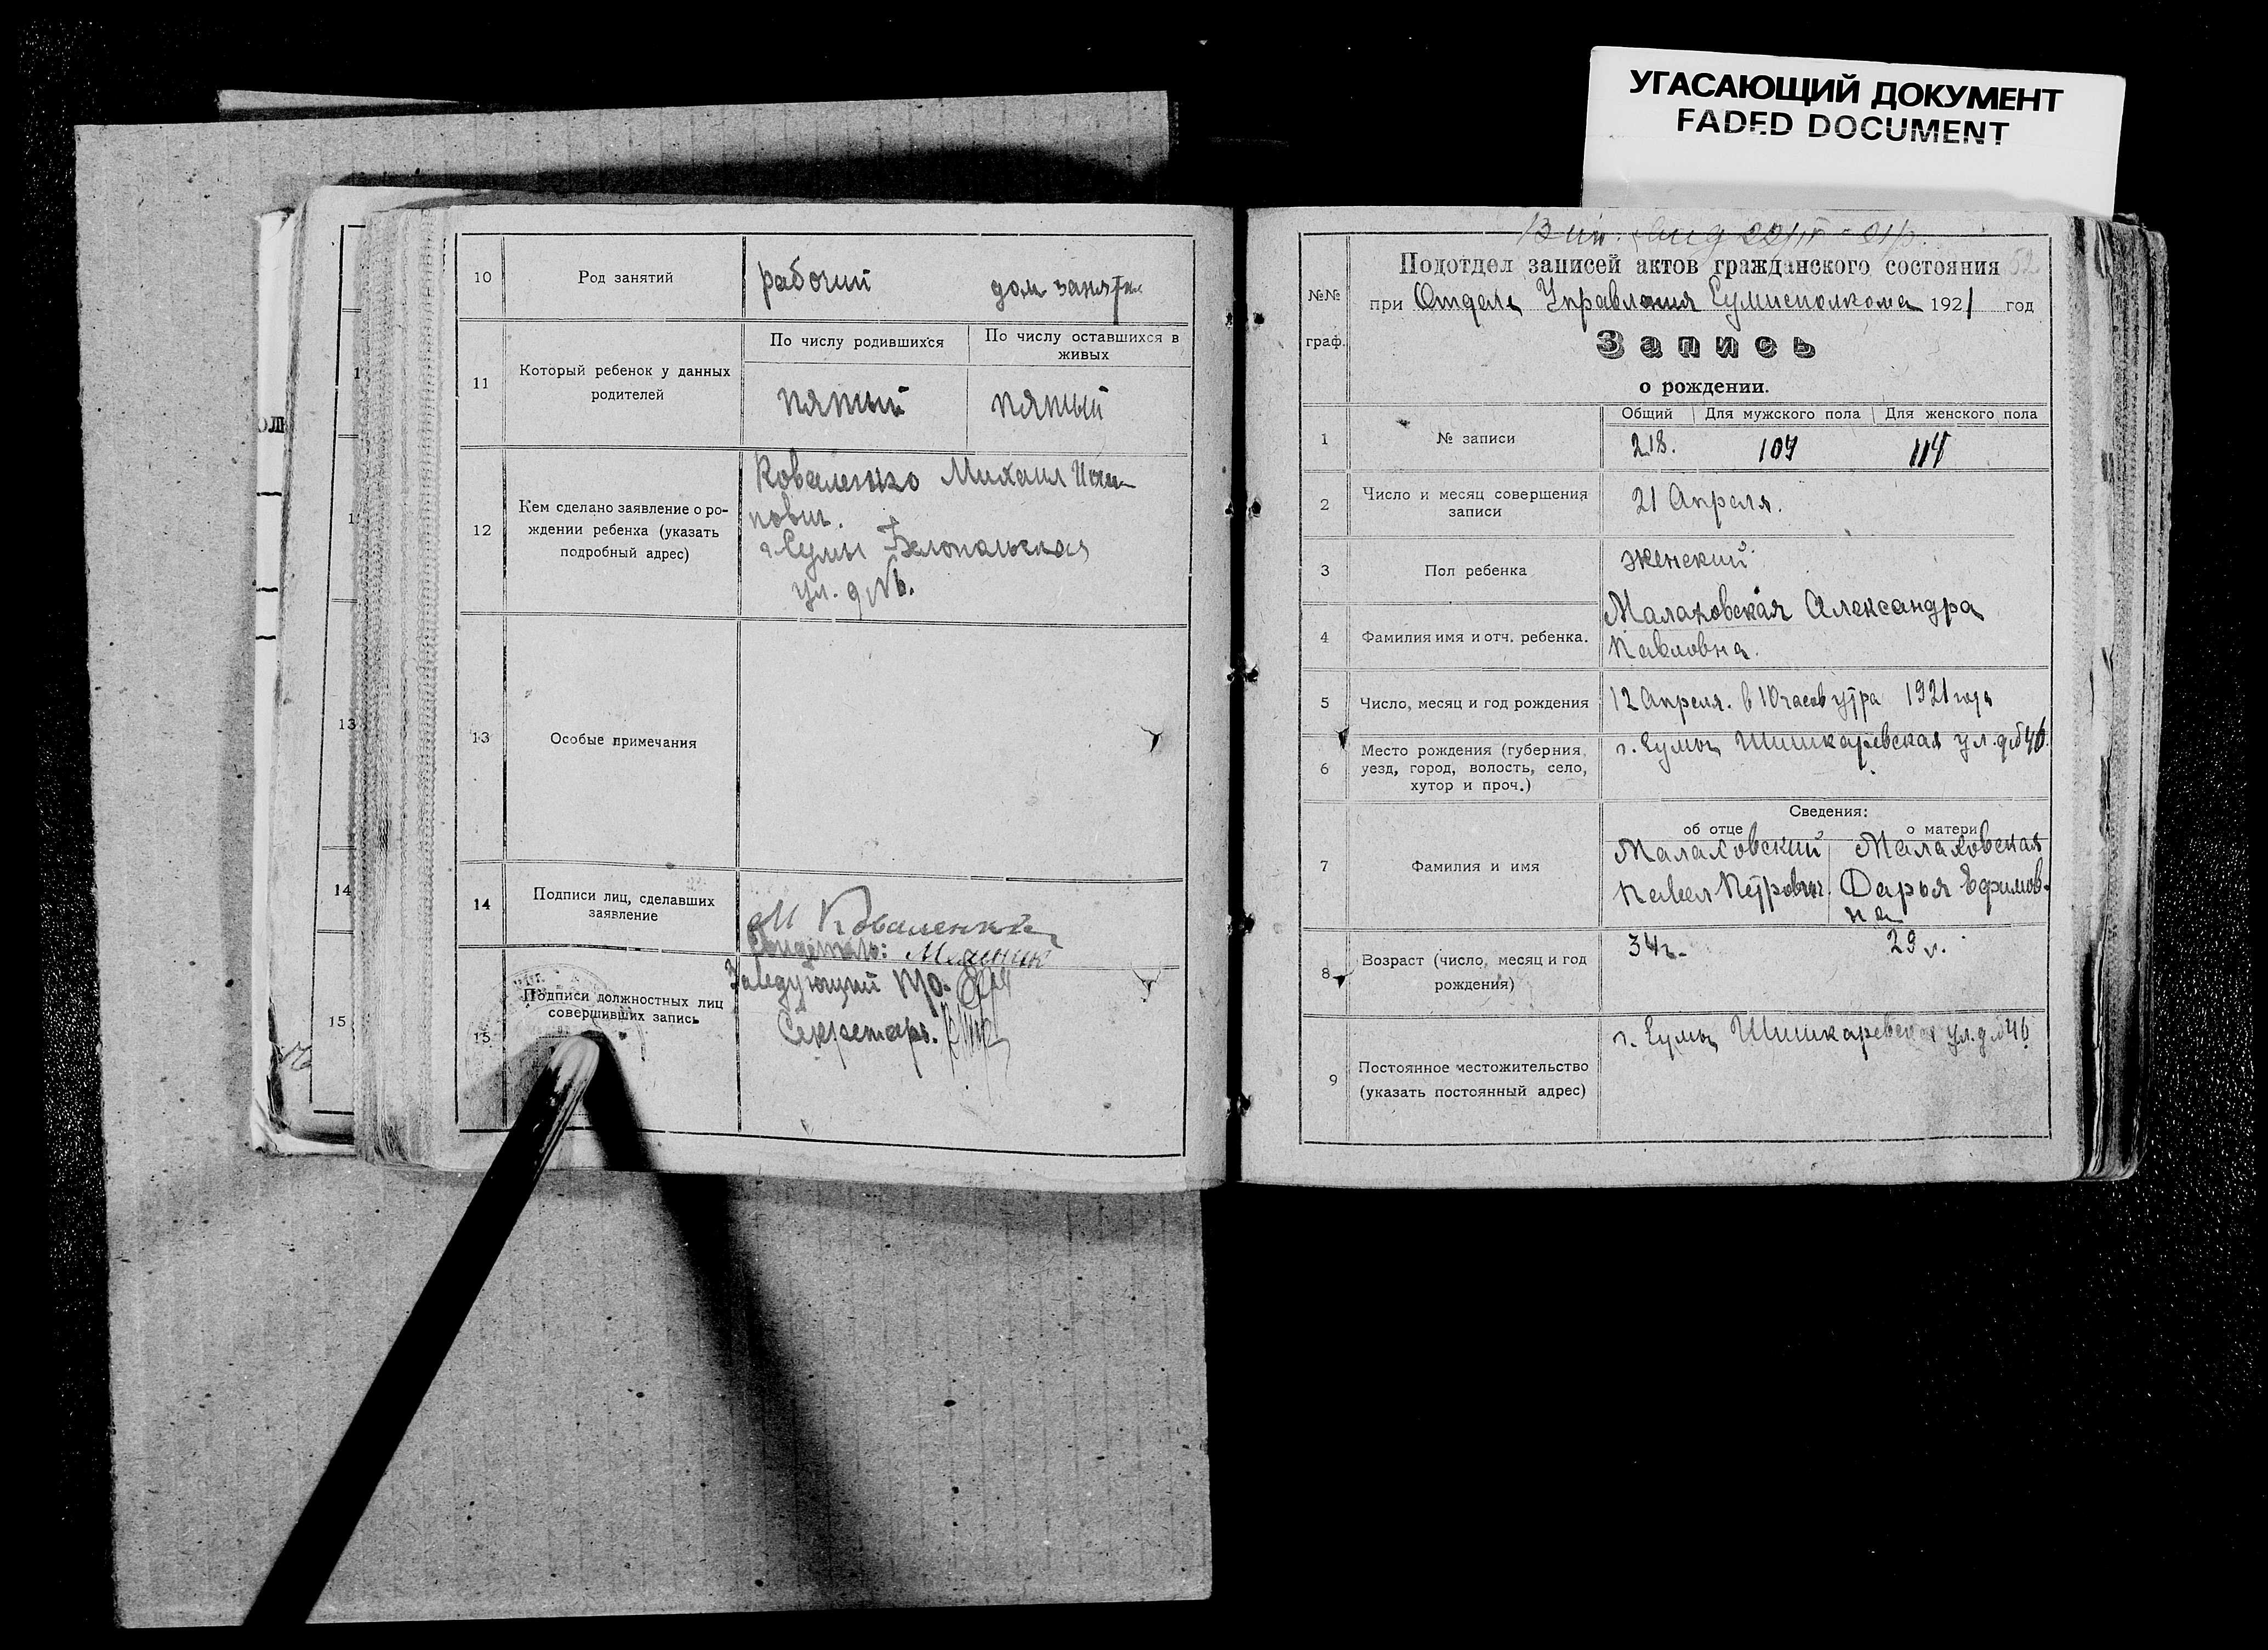 УГАСАЮЩИЙ ДОКУМЕНТ
FADED DOCUMENT
10 Род занятий рабочий дом. занятия
11 Который ребенок у данных родителей
По числу родившихся По числу оставшихся в живых
пятый пятый
12 Кем сделано заявление о рождении ребенка (указать подробный адрес)
Коваленко Михаил
г. Сумы Белопольская
ул. д №6.
13 Особые примечания
14 Подписи лиц, сделавших заявление
М Коваленко
Свидетель:
15 Подписи должностных лиц совершивших запись
Заведующий
Секретарь.
13
14
15
52
Подотдел записей актов гражданского состояния
№№ граф.
при Отделе Управления Сумисполкома 1921 год
Запись
о рождении.
Общий Для мужского пола Для женского пола
1 № записи 218. 107 114
2 Число и месяц совершения записи 21 Апреля.
3 Пол ребенка женский
4 Фамилия имя и отч. ребенка. Малаховская Александра
Павловна.
5 Число, месяц и год рождения 12 Апреля. в 10 часов утра 1921 года
6 Место рождения (губерния, уезд, город, волость, село, хутор и проч.)
г. Сумы Шишкаревская ул. д №46.
Сведения:
об отце о матери
7 Фамилия и имя
Малаховский Малаховская
Павел Петрович. Дарья Ефимов-
на
8 Возраст (число, месяц и год рождения) 34 г. 29 л.
9 Постоянное местожительство (указать постоянный адрес)
г. Сумы Шишкаревская ул. д №46